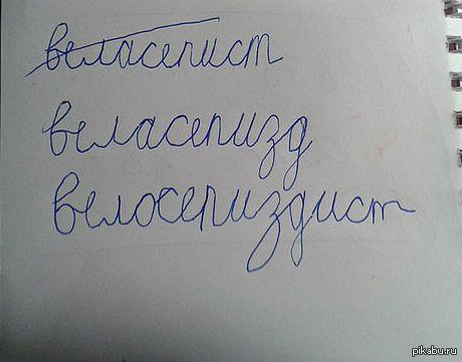 веласепист
веласепизд
велосепиздист
pikabu.ru